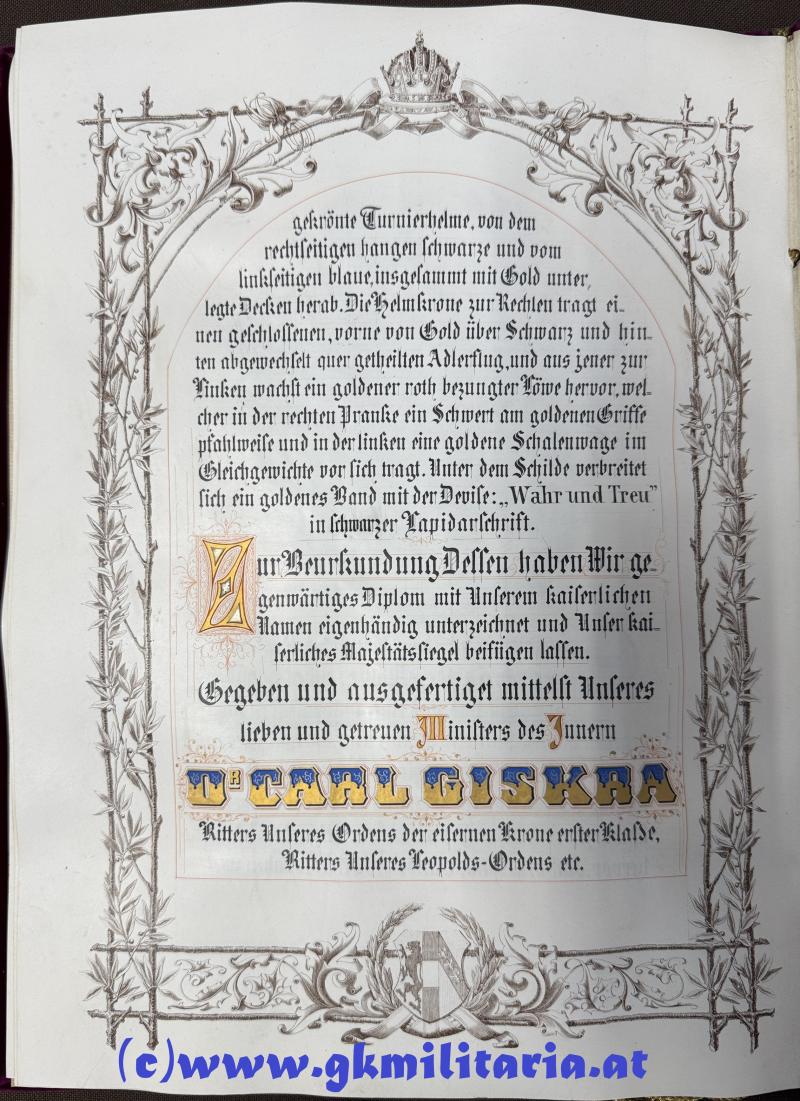 gekrönte Turnierhelme, von dem
rechtseitigen hangen schwarze und vom
linkseitigen blaue, insgesammt mit Gold unter,
legte Decken herab. Die Helmkrone zur Rechten tragt ei-
nen geschlossenen, vorne von Gold über Schwarz und hin-
ten abgewechselt quer getheilten Adlerflug, und aus jener zur
Linken wachst ein goldener roth bezungter Löwe hervor, wel-
cher in der rechten Pranke ein Schwert am goldenen Griffe
pfahlweise und in der linken eine goldene Schalenwage im
Gleichgewichte vor sich tragt. Unter dem Schilde verbreitet
sich ein goldenes Band mit der Devise: „Wahr und Treu"
in schwarzer Lapidarschrift.
Zur Beurkundung Dessen haben Wir ge-
genwärtiges Diplom mit Unserem kaiserlichen
Namen eigenhändig unterzeichnet und Unser kai-
serliches Majestätssiegel beifügen lassen.
Gegeben und ausgefertiget mittelst Unseres
lieben und getreuen Ministers des Innern
DR CARL GISKRA
Ritters Unseres Ordens der eisernen Krone erster Klasse,
Ritters Unseres Leopolds-Ordens etc.
(c)www.gkmilitaria.at